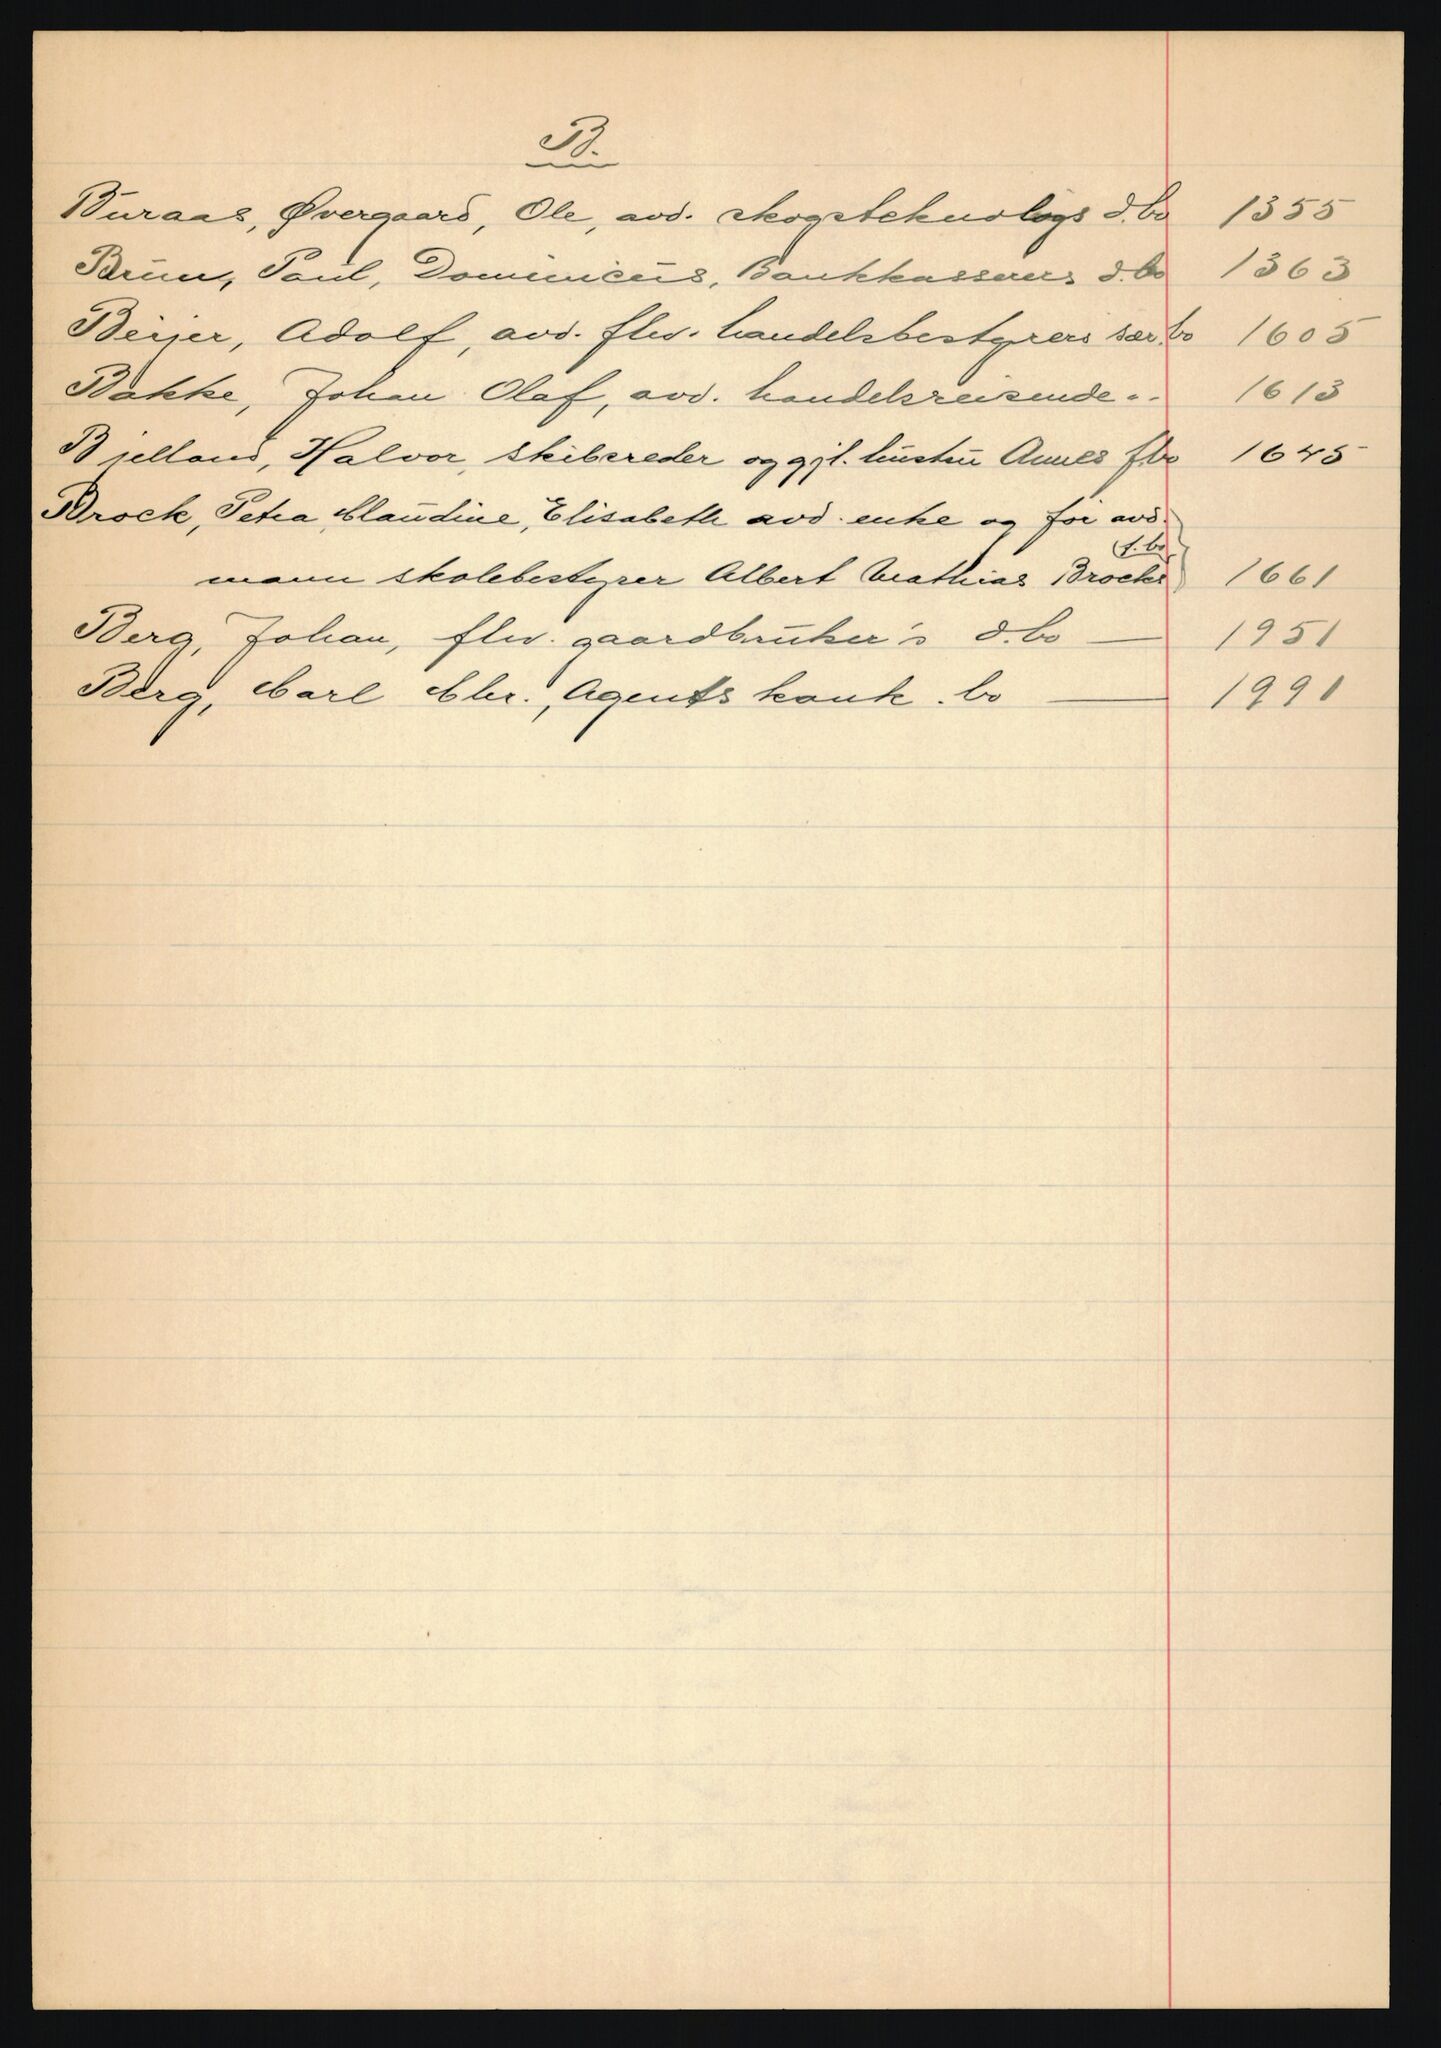 B.
Buraas, Øvergaard, Ole, avd. skogsteknologs d.bo 1355
Bruun, Paul, Dominicus, Bankkasserers d.bo 1363
Beijer, Adolf, avd. fhv. handelsbestyrers sær.bo 1605
Bakke, Johan Olaf, avd. handelsreisende -"- 1613
Bjelland, Halvor, skibsreder og gjl. hustru Annes f.bo 1645
Brock, Petra Claudine, Elisabeth avd. enke og før avd.
mann skolebestyrer Albert Mathias Brocks f.bo 1661
Berg, Johan, fhv. gaardbruker's d.bo — 1951
Berg, Carl Chr., Agents konk.bo — 1991